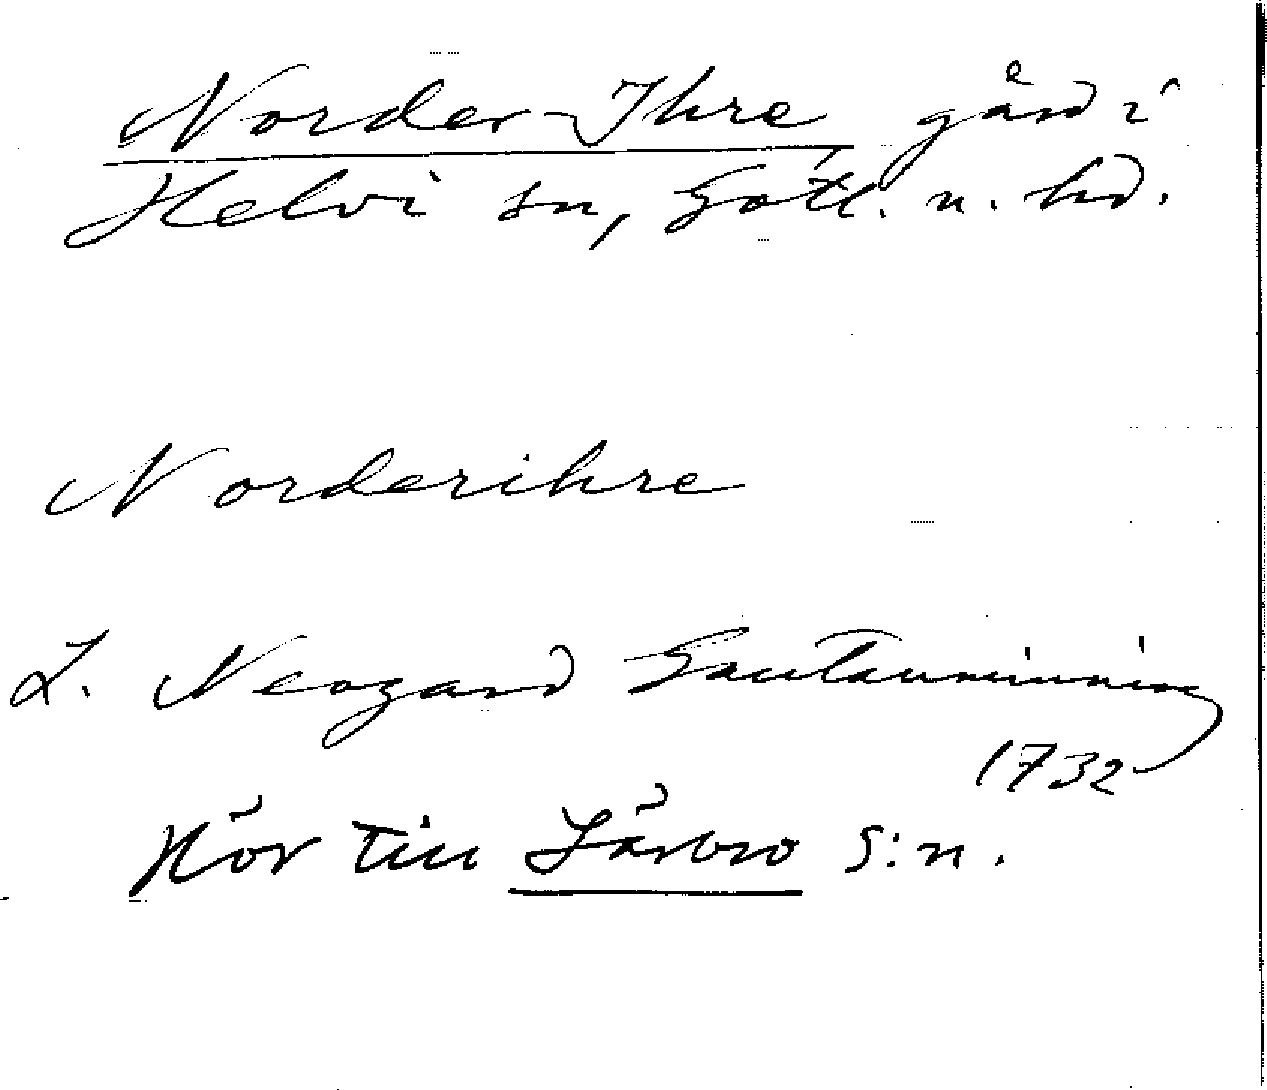 Norder-Ihre gård i
Helvi sn, Gotl. n. hd.
Norderihre
L. Neogard Gautauminning
1732
Hör till Lärbro s:n.